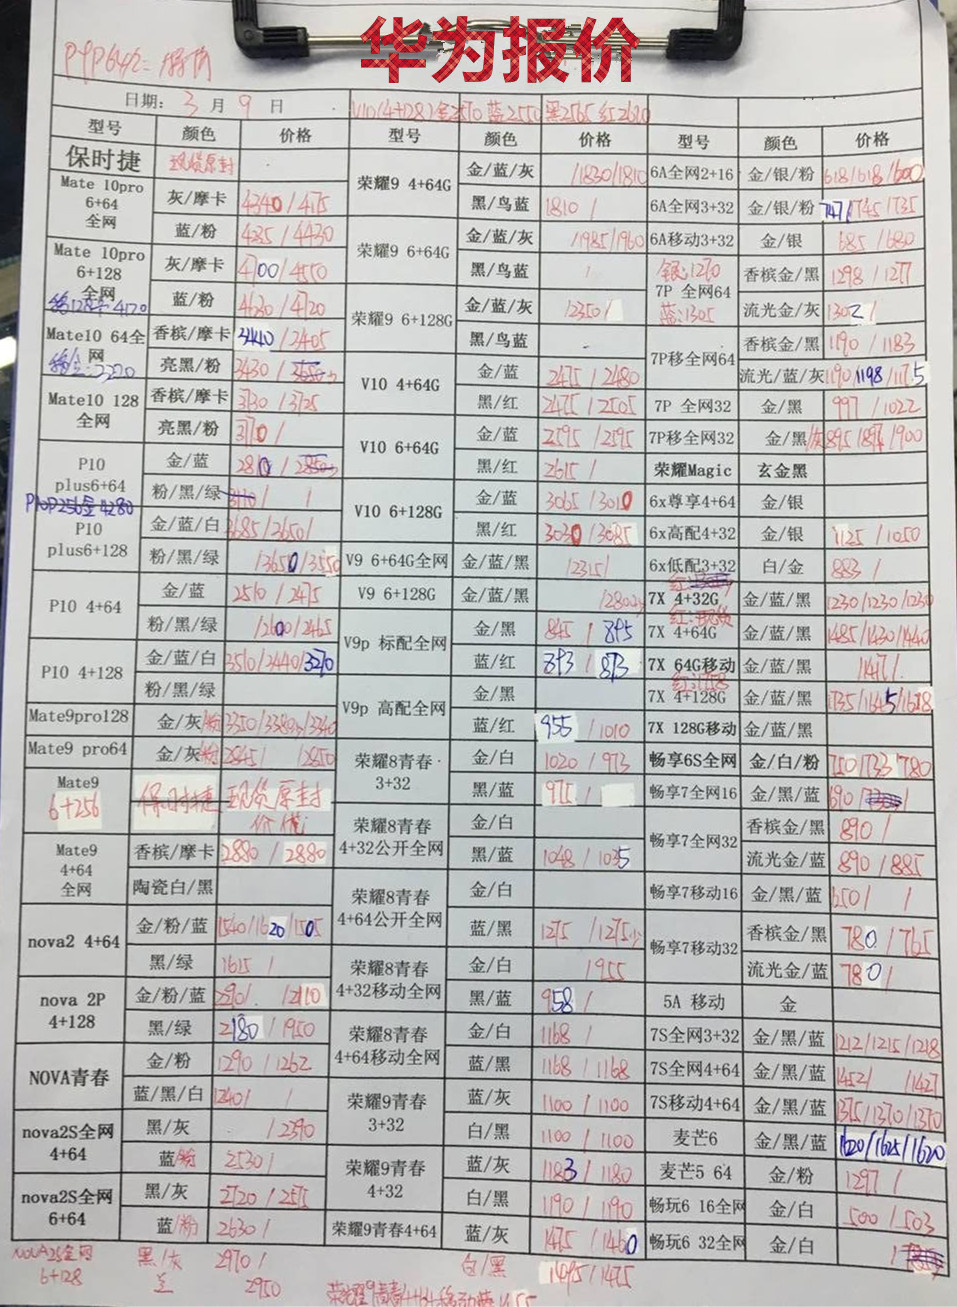 华为报价
日期: 3 月 9 日
V10(4+128)金2510 蓝2550 黑2565 红2620
型号 颜色 价格 型号 颜色 价格 型号 颜色 价格
保时捷 现货原封
Mate 10pro 6+64 全网
灰/摩卡 4340/4175
蓝/粉 4435/4430
Mate 10pro 6+128 全网
灰/摩卡 4700/4550
蓝/粉 4630/4720
Mate10 64全网
香槟/摩卡 3440/3405
亮黑/粉 3430/
Mate10 128 全网
香槟/摩卡 3730/3725
亮黑/粉 3710/
P10 plus6+64
金/蓝 2810/
粉/黑/绿
P10P256金4280
P10 plus6+128
金/蓝/白 3685/3650/
粉/黑/绿 /3650/3550
P10 4+64
金/蓝 2510/2475
粉/黑/绿 /2600/2465
P10 4+128
金/蓝/白 3510/2440/3270
粉/黑/绿
Mate9pro128 金/灰/粉 3350/3380/3340
Mate9 pro64 金/灰/粉 2845/ /2850
Mate9 6+256 保时捷 现货原封 价优
Mate9 4+64 全网
香槟/摩卡 2880/2880
陶瓷白/黑
nova2 4+64
金/粉/蓝 1540/1620/1505
黑/绿 1615/
nova 2P 4+128
金/粉/蓝 2190/ /2110
黑/绿 2180/1950
NOVA青春
金/粉 1290/1262
蓝/黑/白 1240/ /
nova2S全网 4+64
黑/灰 /2390
蓝/粉 2530/
nova2S全网 6+64
黑/灰 2720/2575
蓝/粉 2630/
NOVA2S全网 6+128
黑/灰 2970/
兰 2950
荣耀9 4+64G
金/蓝/灰 /1830/1810
黑/鸟蓝 1810/
荣耀9 6+64G
金/蓝/灰 /1985/1960
黑/鸟蓝 /
荣耀9 6+128G
金/蓝/灰 /2350/
黑/鸟蓝
V10 4+64G
金/蓝 2475/2480
黑/红 2475/2505
V10 6+64G
金/蓝 2595/2595
黑/红 2615/
V10 6+128G
金/蓝 3065/3010
黑/红 3030/3085
V9 6+64G全网 金/蓝/黑 /2315/
V9 6+128G 金/蓝/黑 /2800
V9p 标配全网
金/黑 845/845
蓝/红 893/893
V9p 高配全网
金/黑
蓝/红 955/1010
荣耀8青春 3+32
金/白 1020/973
黑/蓝 975/
荣耀8青春 4+32公开全网
金/白
黑/蓝 1048/1035
荣耀8青春 4+64公开全网
金/白
蓝/黑 1275/1275
荣耀8青春 4+32移动全网
金/白 /955
黑/蓝 958/
荣耀8青春 4+64移动全网
金/白 1168/
蓝/黑 1168/1168
荣耀9青春 3+32
蓝/灰 1100/1100
白/黑 1100/1100
荣耀9青春 4+32
蓝/灰 1183/1180
白/黑 1190/1190
荣耀9青春4+64 蓝/灰 1475/1460
白/黑 1495/1475
6A全网2+16 金/银/粉 618/618/600
6A全网3+32 金/银/粉 747/745/735
6A移动3+32 金/银 685/680
银:1270
7P 全网64
蓝:1305
香槟金/黑 1298/1277
流光金/灰 1302/
7P移全网64
香槟金/黑 1190/1183
流光/蓝/灰 1190/1198/1175
7P 全网32 金/黑 997/1022
7P移全网32 金/黑/灰 895/894/900
荣耀Magic 玄金黑
6x尊享4+64 金/银
6x高配4+32 金/银 1125/1050
6x低配3+32 白/金 883/
7X 4+32G 金/蓝/黑 1230/1230/1230
红:现货
7X 4+64G 金/蓝/黑 1485/1430/1440
7X 64G移动 金/蓝/黑 /1417/
7X 4+128G 金/蓝/黑 1735/1645/1618
7X 128G移动 金/蓝/黑
畅享6S全网 金/白/粉 750/733/780
畅享7全网16 金/黑/蓝 690/
畅享7全网32
香槟金/黑 890/
流光金/蓝 890/885
畅享7移动16 金/黑/蓝 650/ /
畅享7移动32
香槟金/黑 780/765
流光金/蓝 780/
5A 移动 金
7S全网3+32 金/黑/蓝 1212/1215/1218
7S全网4+64 金/黑/蓝 1452/ /1427
7S移动4+64 金/黑/蓝 1375/1370/1370
麦芒6 金/黑/蓝 1620/1625/1620
麦芒5 64 金/粉 1297/
畅玩6 16全网 金/白 500/503
畅玩6 32全网 金/白